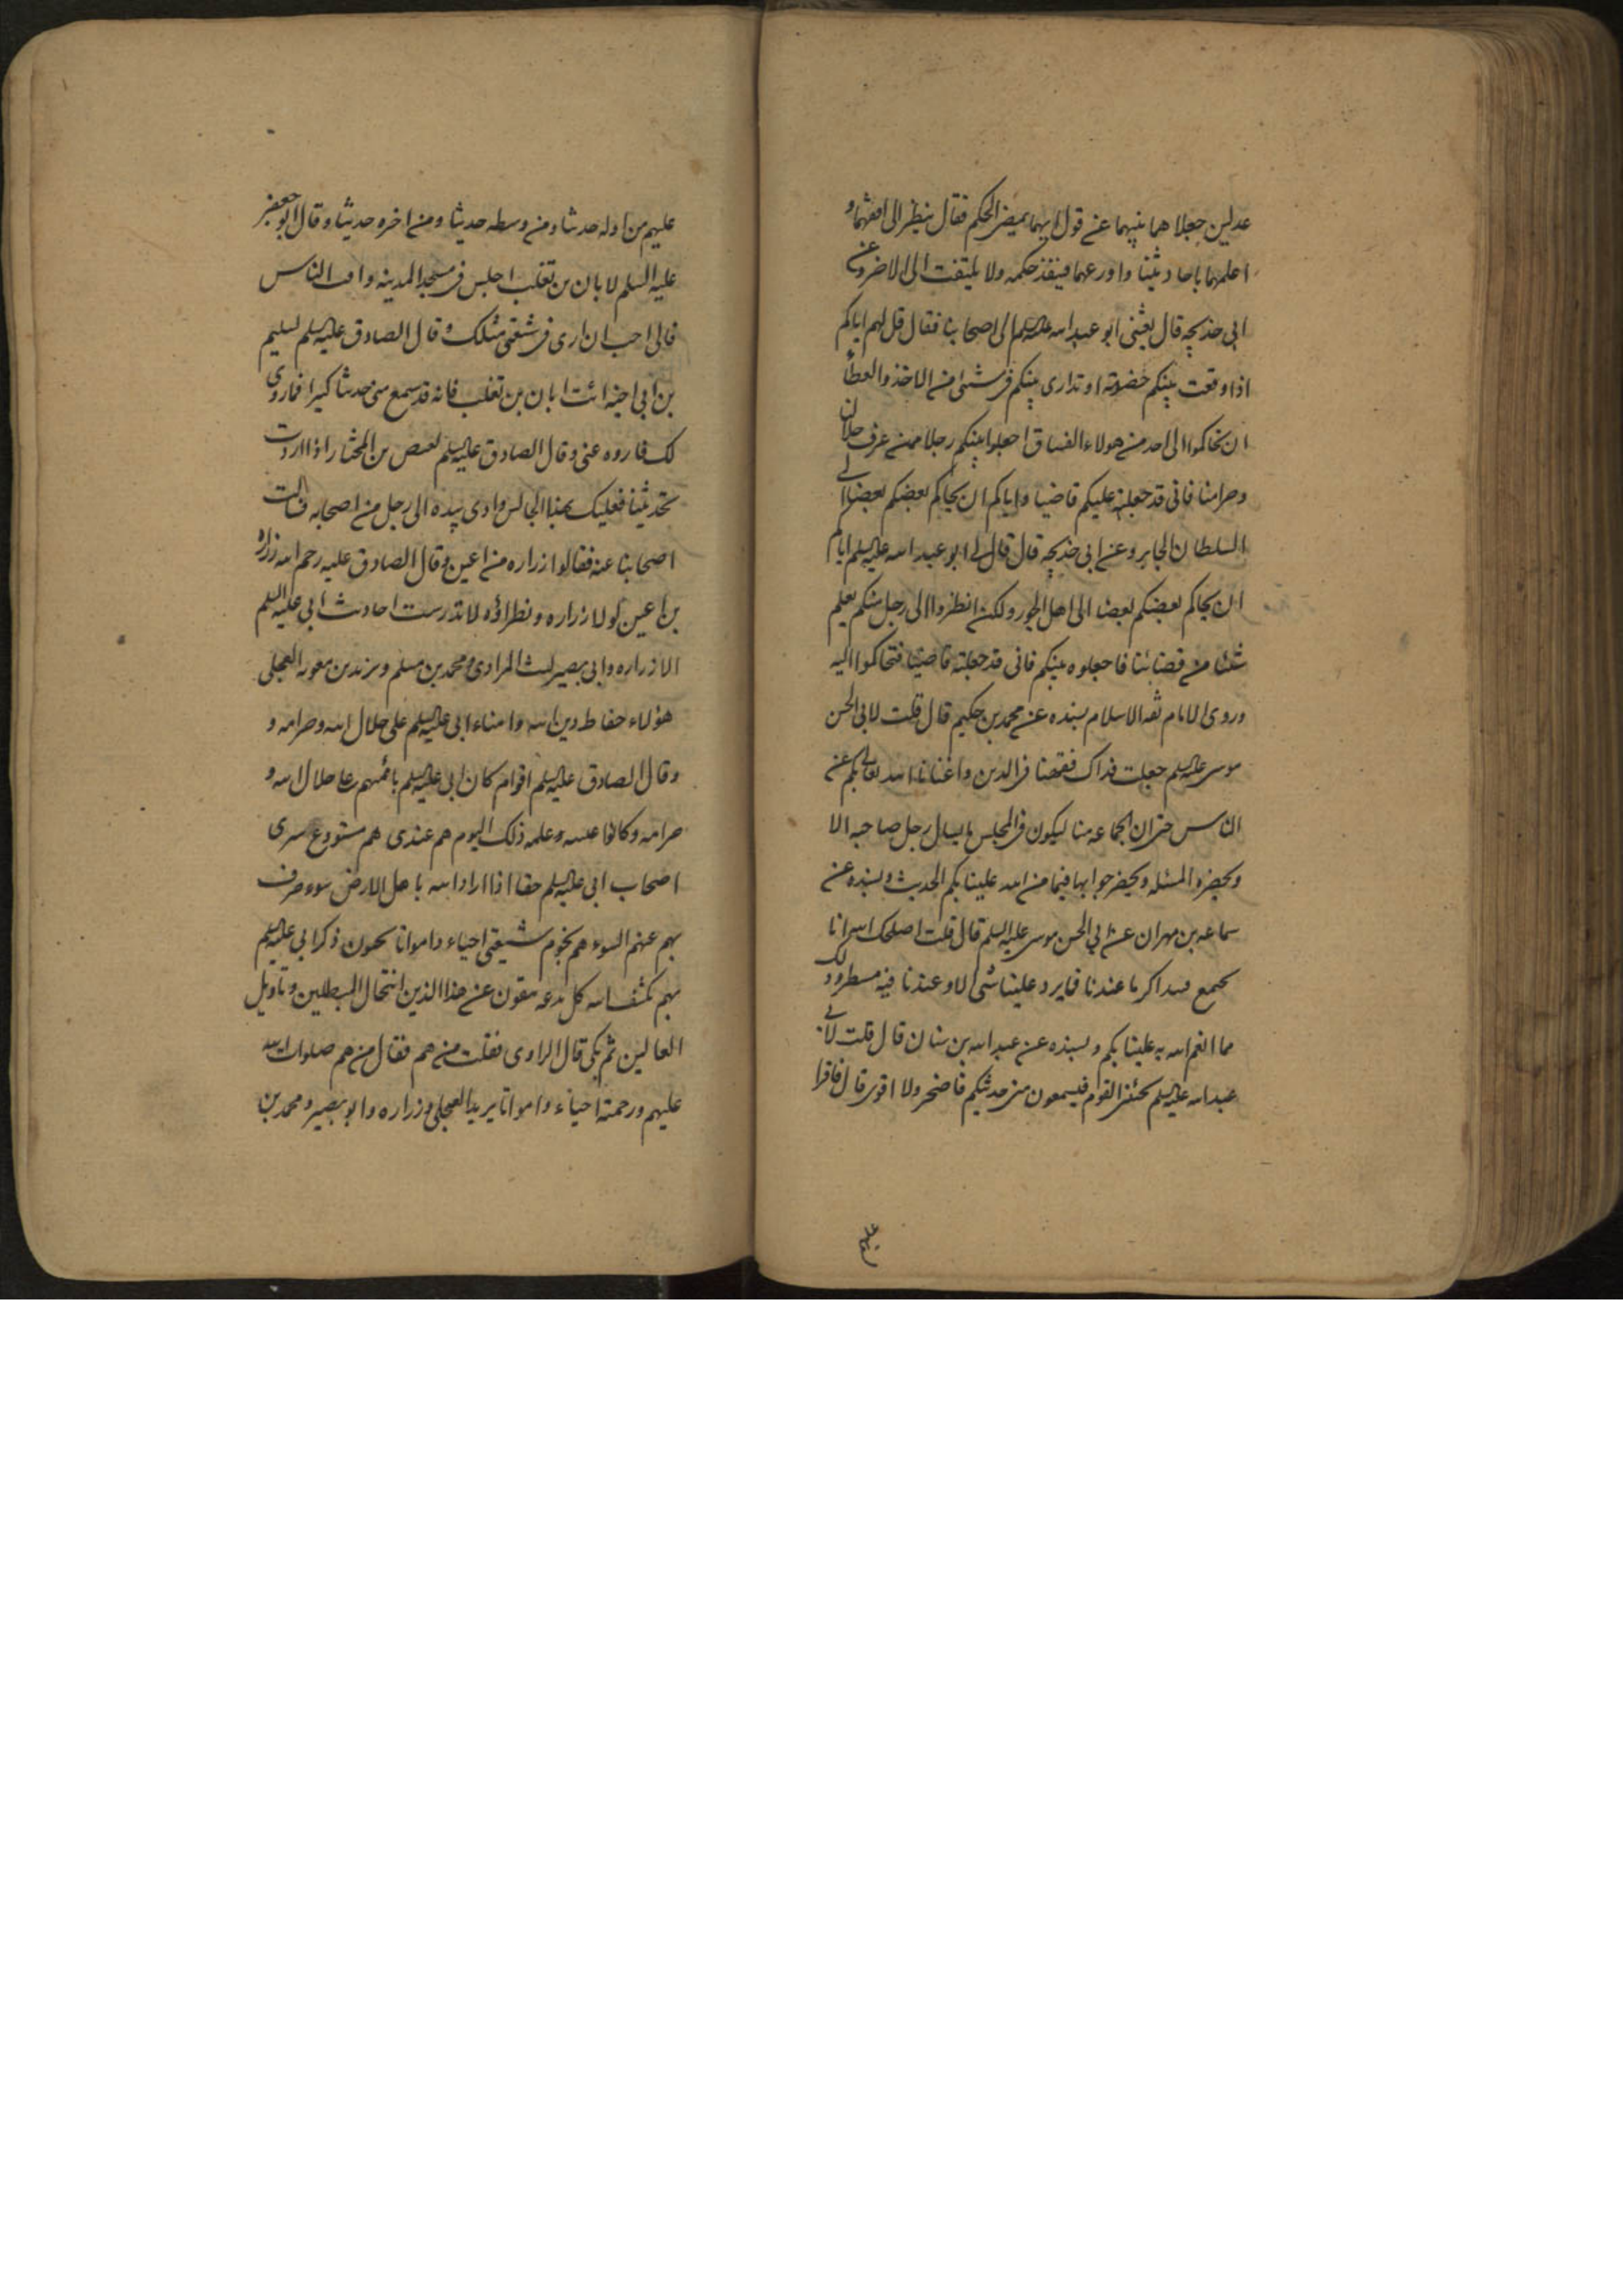 عدلين جعلاهما بينهما عن قول ايهما يمضى الحكم فقال ينظر الى افقههما و
اعلمهما باحاديثنا واورعهما فينفذ حكمه ولا يلتفت الى الاخر وعن
ابى خديجه قال بعثنى ابو عبد الله عليه السلم الى اصحابنا فقال قل لهم اياكم
اذا وقعت بينكم خصومة او تدارى بينكم فى شىء من الاخذ والعطأ
ان تحاكموا الى احد من هولاء الفساق اجعلوا بينكم رجلا ممن عرف حلالنا
وحرامنا فانى قد جعلته عليكم قاضيا واياكم ان يحاكم بعضكم بعضا الى
السلطان الجاير وعن ابى خديجه قال قال لى ابو عبد الله عليه السلم اياكم
ان يحاكم بعضكم بعضا الى اهل الجور ولكن انظروا الى رجل منكم يعلم
شئنا من قضائنا فاجعلوه بينكم فانى قد جعلته قاضيا فتحاكموا اليه
وروى الامام ثقه الاسلام بسنده عن محمد بن حكيم قال قلت لابى الحسن
موسى عليه السلم جعلت فداك فقهنا فى الدين واغنانا الله تعالى بكم عن
الناس حتى ان الجماعه منا ليكون فى المجلس ما يسال رجل صاحبه الا
ويحضره المسئله ويحضر جوابها فيما من الله علينا بكم الحديث وبسنده عن
سماعه بن مهران عن ابى الحسن موسى عليه السلم قال قلت اصلحك الله انا
نجتمع فنتذاكر ما عندنا فما يرد علينا شى الا وعندنا فيه مسطر وذلك
مما انعم الله به علينا بكم وبسنده عن عبد الله بن سنان قال قلت لابى
عبد الله عليه السلم يجئنى القوم فيسمعون منى حديثكم فاضجر ولا اقوى قال فاقرا
عليهم
عليهم من اوله حديثا ومن وسطه حديثا ومن اخره حديثا وقال ابو جعفر
عليه السلم لابان بن تغلب اجلس فى مسجد المدينه وافت الناس
فانى احب ان ارى فى شيعتى مثلك وقال الصادق عليه السلم لسليم
بن ابى حيه ائت ابان بن تغلب فانه قد سمع منى حديثا كثيرا فما روى
لك فاروه عنى وقال الصادق عليه السلم لفيض بن المختار اذا اردت
بحديثنا فعليك بهذا الجالس واومى بيده الى رجل من اصحابه فسالت
اصحابنا عنه فقالوا زراره من اعين وقال الصادق عليه رحم الله زراره
بن اعين لولا زراره ونظراؤه لاندرست احاديث ابى عليه السلم
الا زراره وابى بصير ليث المرادى ومحمد بن مسلم وبريد بن معويه العجلى
هؤلاء حفاظ دين الله وامناء ابى عليه السلم على حلال الله وحرامه و
وقال الصادق عليه السلم اقوام كان ابى عليه السلم يأتمنهم على حلال الله و
حرامه وكانوا عيبه علمه وذلك اليوم هم عندى هم مستودع سرى
اصحاب ابى عليه السلم حقا اذا اراد الله باهل الارض سوء صرف
بهم عنهم السوء هم نجوم شيعتى احياء وامواتا يحيون ذكر ابى عليه السلم
بهم يكشف الله كل بدعه ينفون عن هذا الدين انتحال المبطلين وتأويل
الغالين ثم بكى قال الراوى فقلت من هم فقال من هم صلوات الله
عليهم ورحمته احياء وامواتا بريد العجلى وزراره وابو بصير ومحمد بن